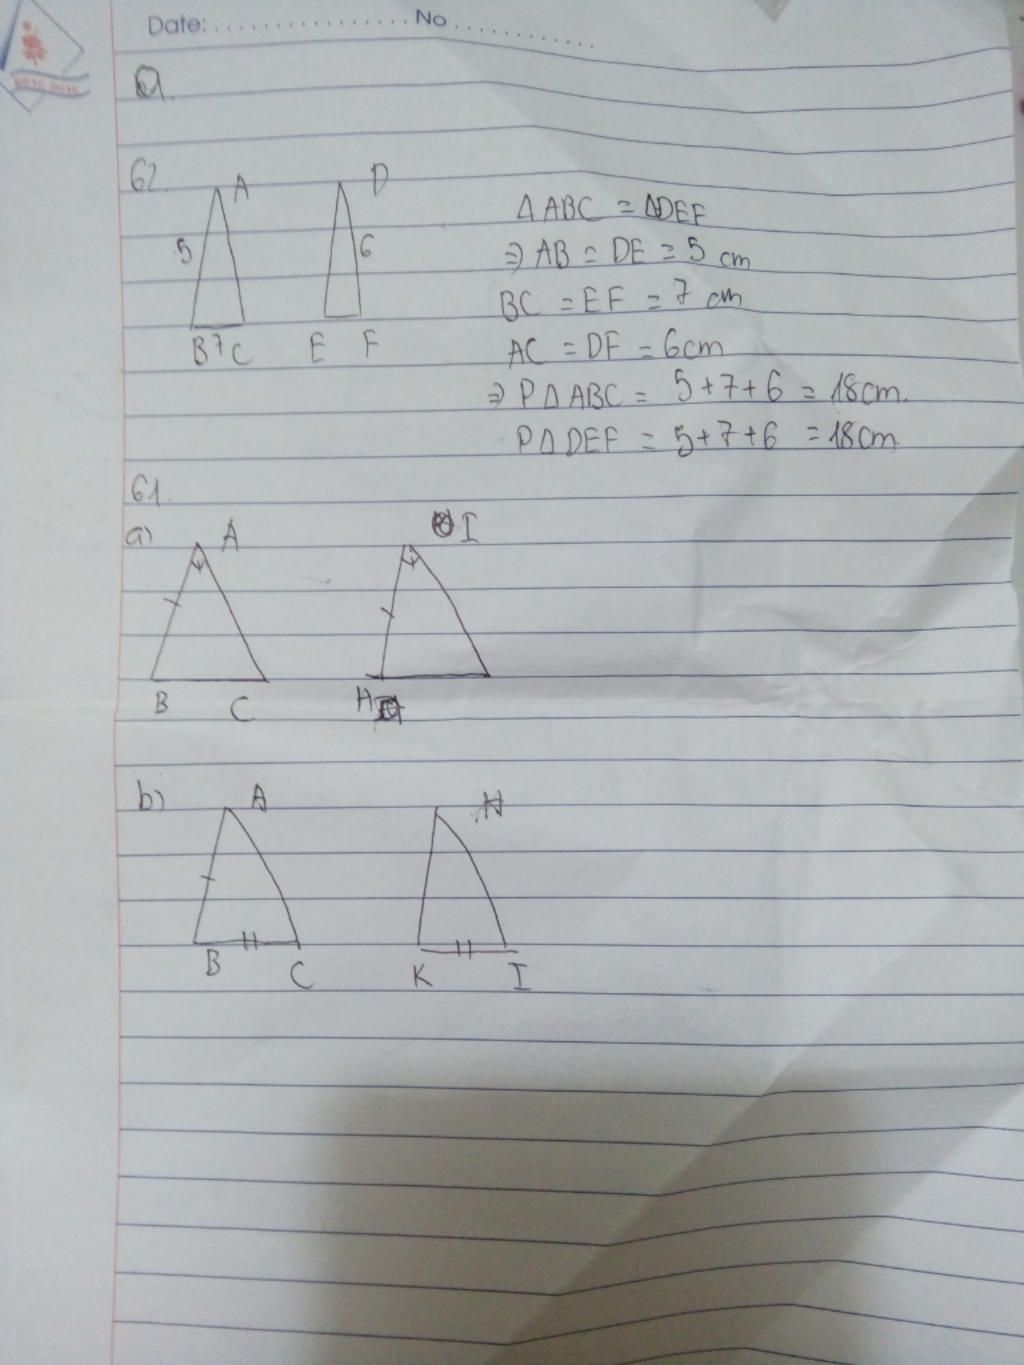 Date: .................. No .............
HONG HONG
62.
A
D
5
6
B 7 C
E F
Δ ABC = ΔDEF
⇒ AB = DE = 5 cm
BC = EF = 7 cm
AC = DF = 6cm
⇒ PΔABC = 5+7+6 = 18cm.
PΔDEF = 5+7+6 = 18cm
61.
a)
A
I
B C
H
b)
A
H
B C
K I